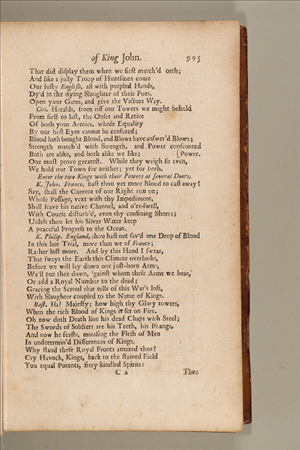 of King John. 995
That did display them when we first march'd orth;
And like a jolly Troop of Huntsmen come
Our lusty English, all with purpled Hands,
Dy'd in the dying Slaughter of their Foes.
Open your Gates, and give the Victors Way.
Citi. Heralds, from off our Towers we might behold
From first to last, the Onset and Retire
Of both your Armies, whose Equality
By our best Eyes cannot be censured;
Blood hath bought Blood, and Blows have answer'd Blows;
Strength match'd with Strength, and Power confronted
Both are alike, and both alike we like; [Power.
One must prove greatest. While they weigh so even,
We hold our Town for neither; yet for both.
Enter the two Kings with their Powers at several Doors.
K. John. France, hast thou yet more Blood to cast away?
Say, shall the Current of our Right run on;
Whose Passage, vext with thy Impediment,
Shall leave his native Channel, and o'er-swell,
With Course disturb'd, even thy confining Shores;
Unless thou let his Silver Water keep
A peaceful Progress to the Ocean.
K. Philip. England, thou hast not sav'd one Drop of Blood
In this hot Trial, more than we of France;
Rather lost more. And by this Hand I swear,
That sways the Earth this Climate overlooks,
Before we will lay down our just-born Arms,
We'll put thee down, 'gainst whom these Arms we bear,
Or add a Royal Number to the dead;
Gracing the Scroul that tells of this War's loss,
With Slaughter coupled to the Name of Kings.
Bast. Ha! Majesty; how high thy Glory towers,
When the rich Blood of Kings is set on Fire.
Oh now doth Death line his dead Chaps with Steel;
The Swords of Soldiers are his Teeth, his Phangs,
And now he feasts, mousing the Flesh of Men
In undetermin'd Differences of Kings.
Why stand these Royal Fronts amazed thus?
Cry Havock, Kings, back to the stained Field
You equal Potents, fiery kindled Spirits:
C 2 Then